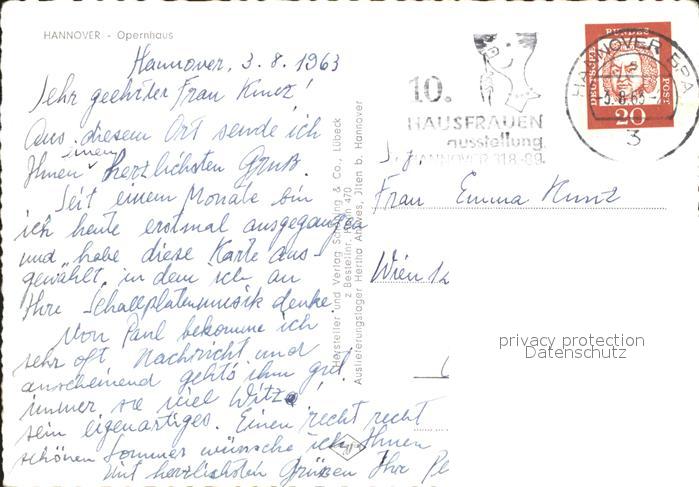 HANNOVER - Opernhaus
Hannover, 3. 8. 1963
Sehr geehrter Frau Kunz!
Aus diesem Ort sende ich
Ihnen einen herzlichsten Gruß.
Seit einem Monate bin
ich heute erstmal ausgegangen
und habe diese Karte aus-
gewählt, in dem ich an
Ihre Schallplattenmusik denke.
Von Paul bekomme ich
sehr oft Nachricht und
anscheinend geht's ihm gut
immer so viel Witze
sein eigenartiges. Einen recht recht
schönen Sommer wünsche ich Ihnen
mit herzlichsten Grüßen Ihr
Hersteller und Verlag Schöning & Co., Lübeck
z Besteller. Hann 470
Auslieferungslager Hertha Ahlves, Ilten b. Hannover
10.
HAUSFRAUEN
ausstellung
HANNOVER 31.8.-9.9.
HANNOVER BPA
-3.8.63
3
DEUTSCHE
BUNDES
POST
20
Frau Emma Kunz
Wien 12
privacy protection
Datenschutz